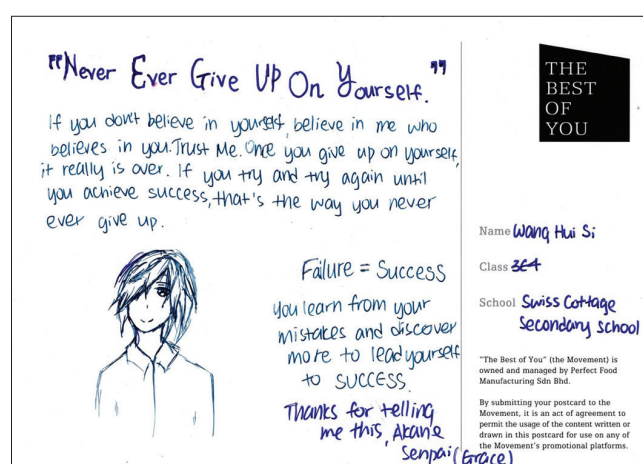 "Never Ever Give UP On Yourself."
If you don't believe in yourself, believe in me who
believes in you. Trust Me. Once you give up on yourself,
it really is over. If you try and try again until
you achieve success, that's the way you never
ever give up.
Failure = Success
you learn from your
mistakes and discover
more to lead yourself
to SUCCESS.
Thanks for telling
me this, Akane
Senpai (Grace)
THE
BEST
OF
YOU
Name Wang Hui Si
Class 3E4
School Swiss Cottage
Secondary School
"The Best of You" (the Movement) is
owned and managed by Perfect Food
Manufacturing Sdn Bhd.
By submitting your postcard to the
Movement, it is an act of agreement to
permit the usage of the content written or
drawn in this postcard for use on any of
the Movement's promotional platforms.